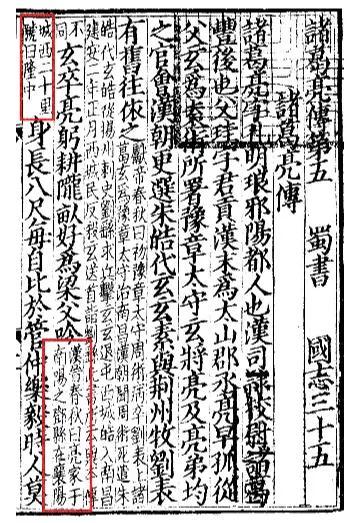 諸葛亮傳第五　蜀書　國志三十五
諸葛亮傳
諸葛亮字孔明琅邪陽都人也漢司隸校尉諸葛
豐後也父珪字君貢漢末爲太山郡丞亮早孤從
父玄爲袁術所署豫章太守玄將亮及亮弟均
之官會漢朝更選朱皓代玄玄素與荊州牧劉表
有舊往依之
獻帝春秋曰初豫章太守周術病卒劉表上諸
葛玄爲豫章太守治南昌漢朝聞周術死遣朱
皓代玄皓從揚州刺史劉繇求兵擊玄玄退屯西城皓入南昌
建安二年正月西城民反殺玄送首詣繇此書所云與本傳
不
同
玄卒亮躬耕隴畝好爲梁父吟
漢晉春秋曰亮家于
南陽之鄧縣在襄陽
城西二十里
號曰隆中
身長八尺每自比於管仲樂毅時人莫